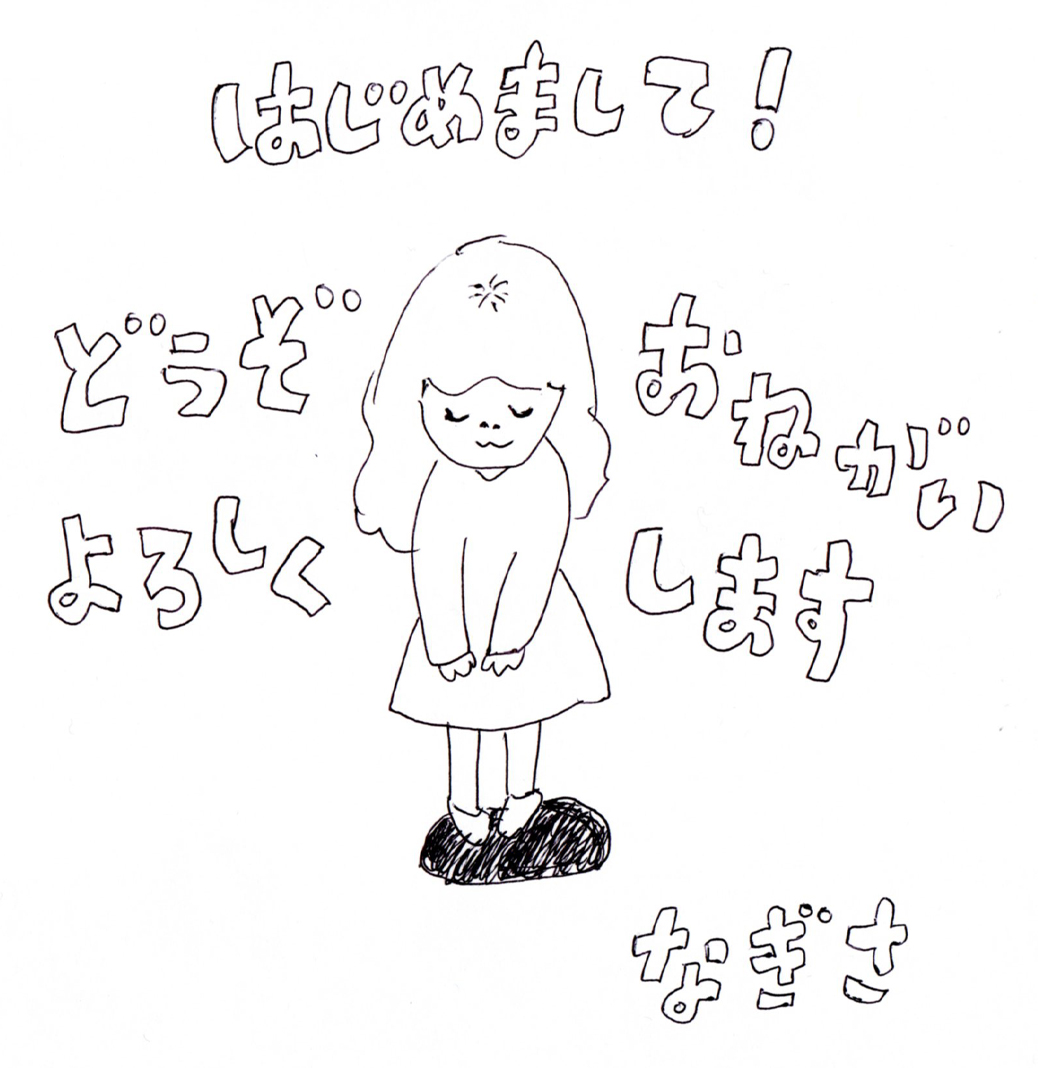 はじめまして!
どうぞ
よろしく
おねがい
します
なぎさ